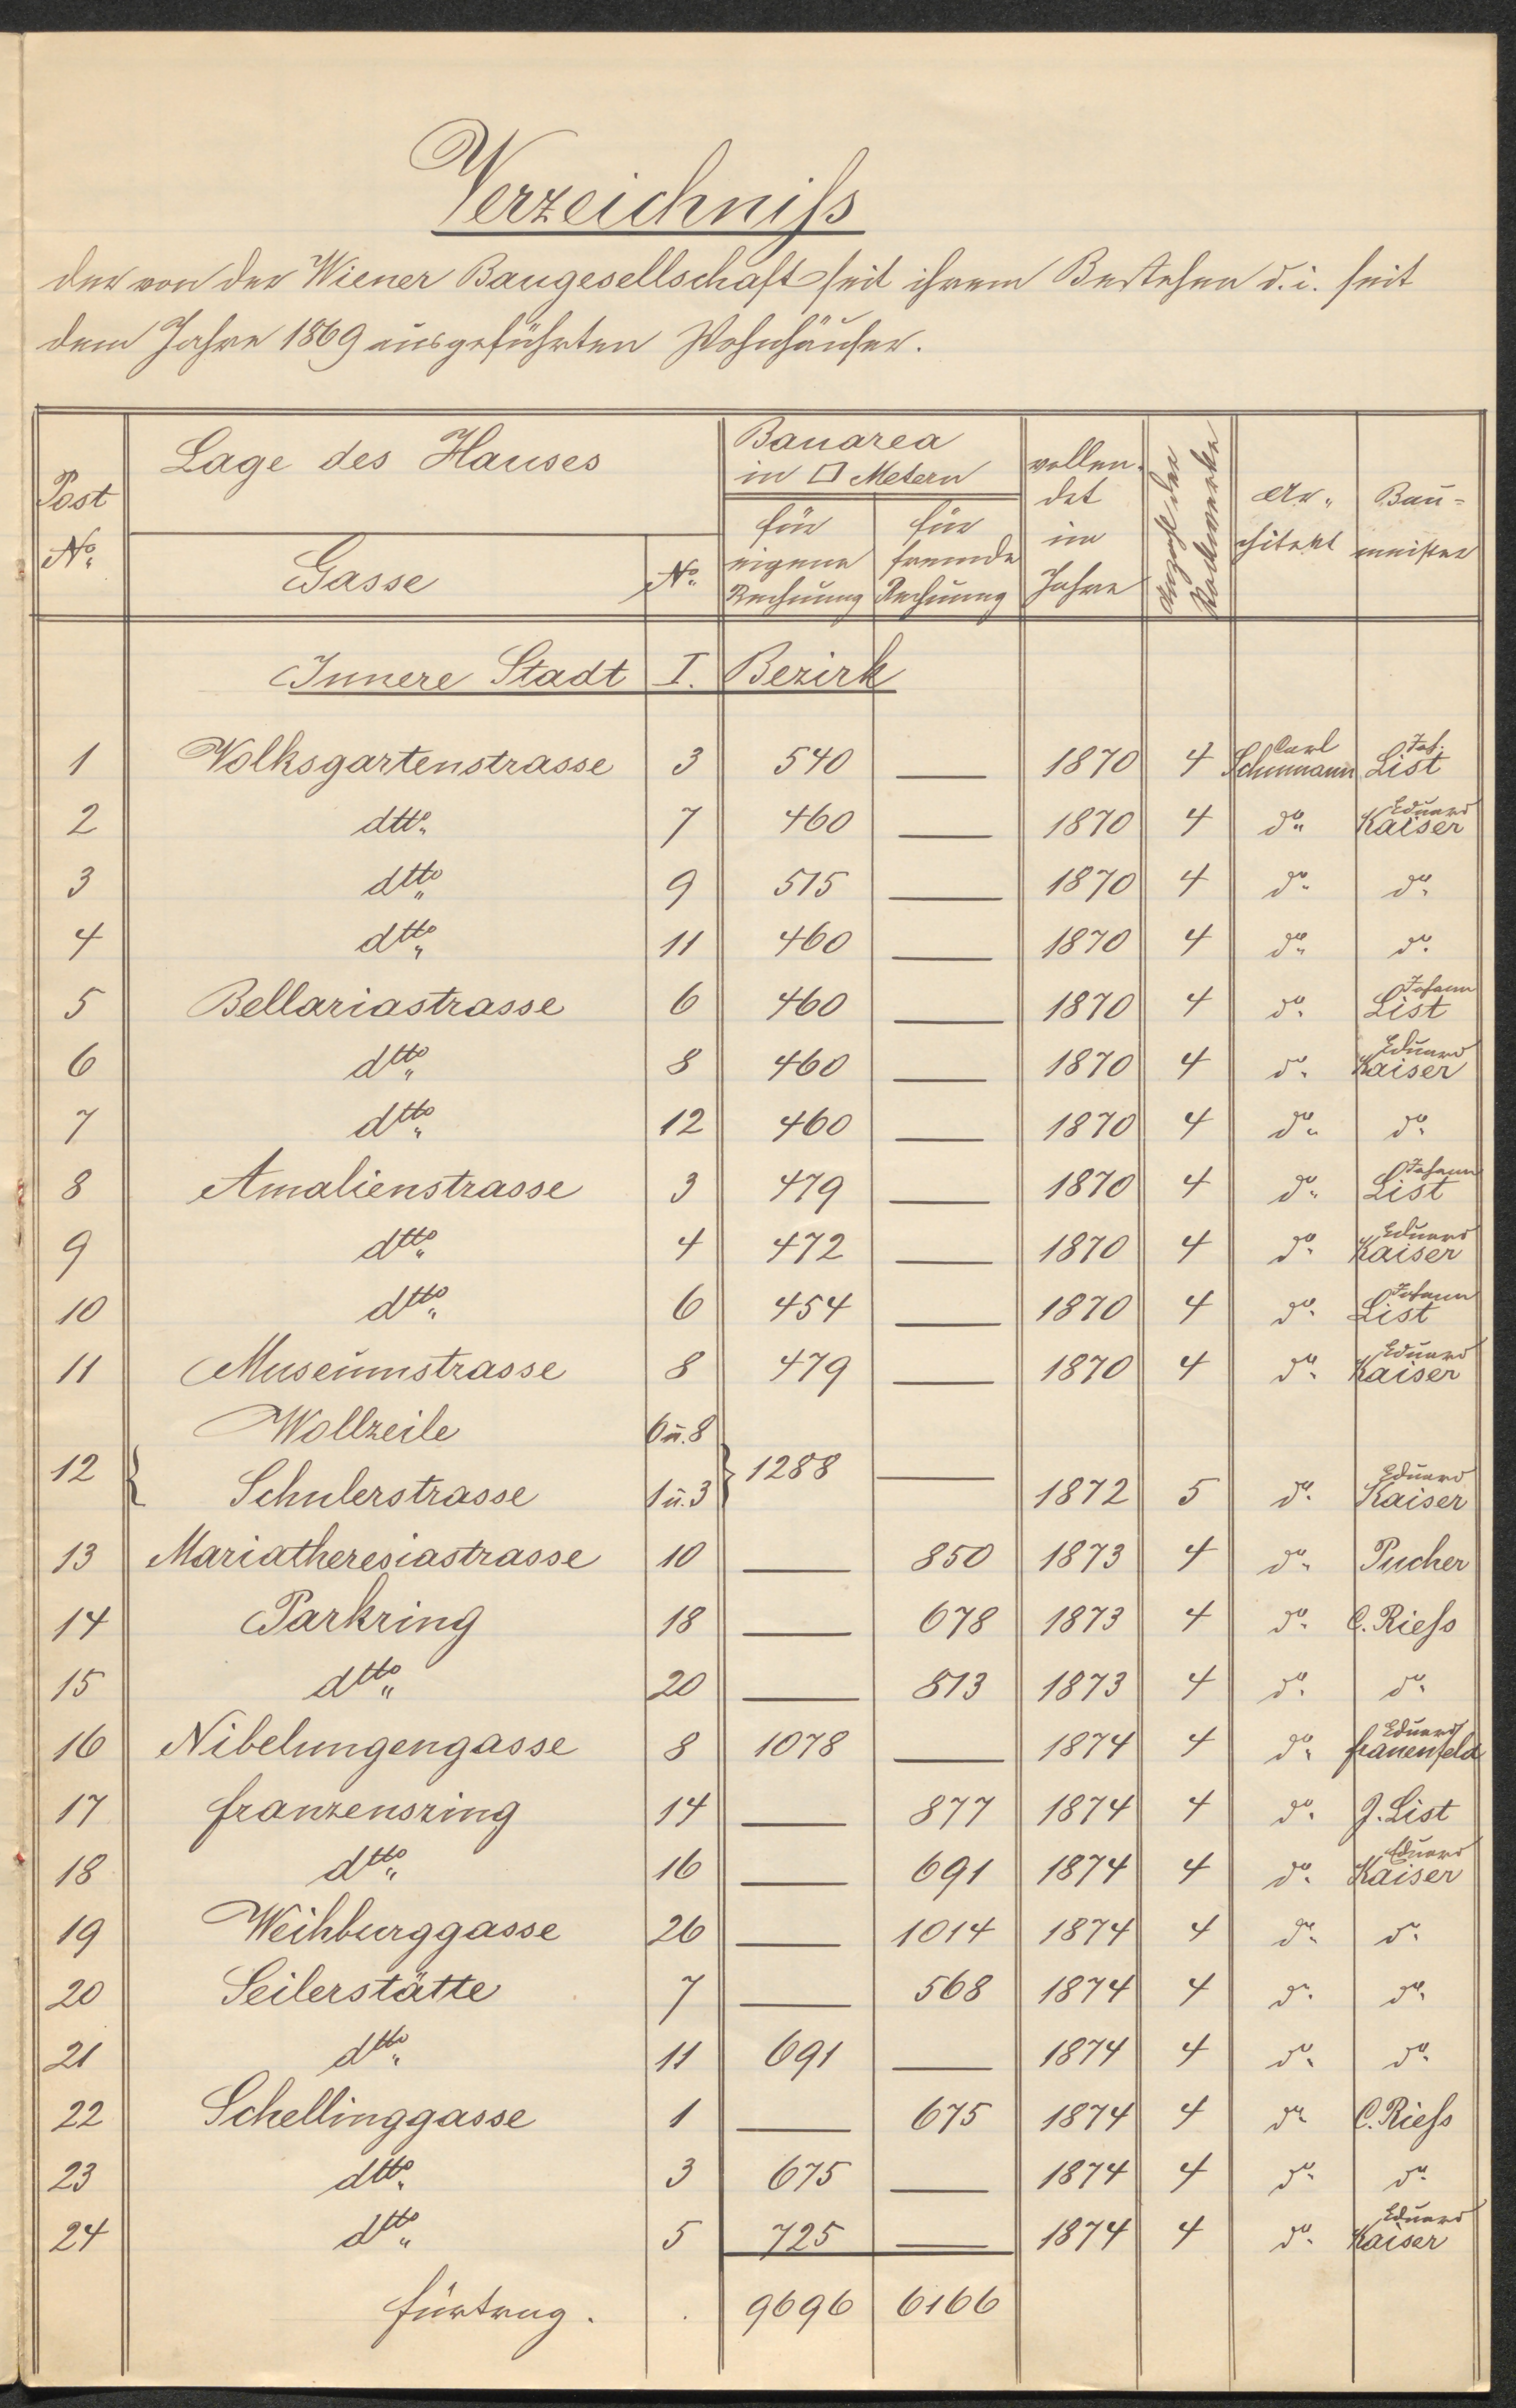 Verzeichniß
der von der Wiener Baugesellschaft seit ihrem Bestehen d. i. seit
dem Jahre 1869 ausgeführten Wohnhäuser.
Post No. | Lage des Hauses | Bauarea in □ Metern | vollendet im Jahre | Anzahl der Stockwerke | Architekt | Baumeister
Gasse | No. | für eigene Rechnung | für fremde Rechnung
Innere Stadt I. Bezirk
1 Volksgartenstrasse 3 540 — 1870 4 Carl Schumann Joh. List
2 dtto 7 460 — 1870 4 do. Eduard Kaiser
3 dtto 9 515 — 1870 4 do. do.
4 dtto 11 460 — 1870 4 do. do.
5 Bellariastrasse 6 460 — 1870 4 do. Johann List
6 dtto 8 460 — 1870 4 do. Eduard Kaiser
7 dtto 12 460 — 1870 4 do. do.
8 Amalienstrasse 3 479 — 1870 4 do. Johann List
9 dtto 4 472 — 1870 4 do. Eduard Kaiser
10 dtto 6 454 — 1870 4 do. Johann List
11 Museumstrasse 8 479 — 1870 4 do. Eduard Kaiser
Wollzeile 6 u. 8
12 { Schulerstrasse 1 u. 3 } 1288 — 1872 5 do. Eduard Kaiser
13 Mariatheresiastrasse 10 — 850 1873 4 do. Pucher
14 Parkring 18 — 678 1873 4 do. C. Rieß
15 dtto 20 — 813 1873 4 do. do.
16 Nibelungengasse 8 1078 — 1874 4 do. Eduard Frauenfeld
17 Franzensring 14 — 877 1874 4 do. J. List
18 dtto 16 — 691 1874 4 do. Eduard Kaiser
19 Weihburggasse 26 — 1014 1874 4 do. do.
20 Seilerstätte 7 — 568 1874 4 do. do.
21 dtto 11 691 — 1874 4 do. do.
22 Schellinggasse 1 — 675 1874 4 do. C. Rieß
23 dtto 3 675 — 1874 4 do. do.
24 dtto 5 725 — 1874 4 do. Eduard Kaiser
Fürtrag. . 9696 6166